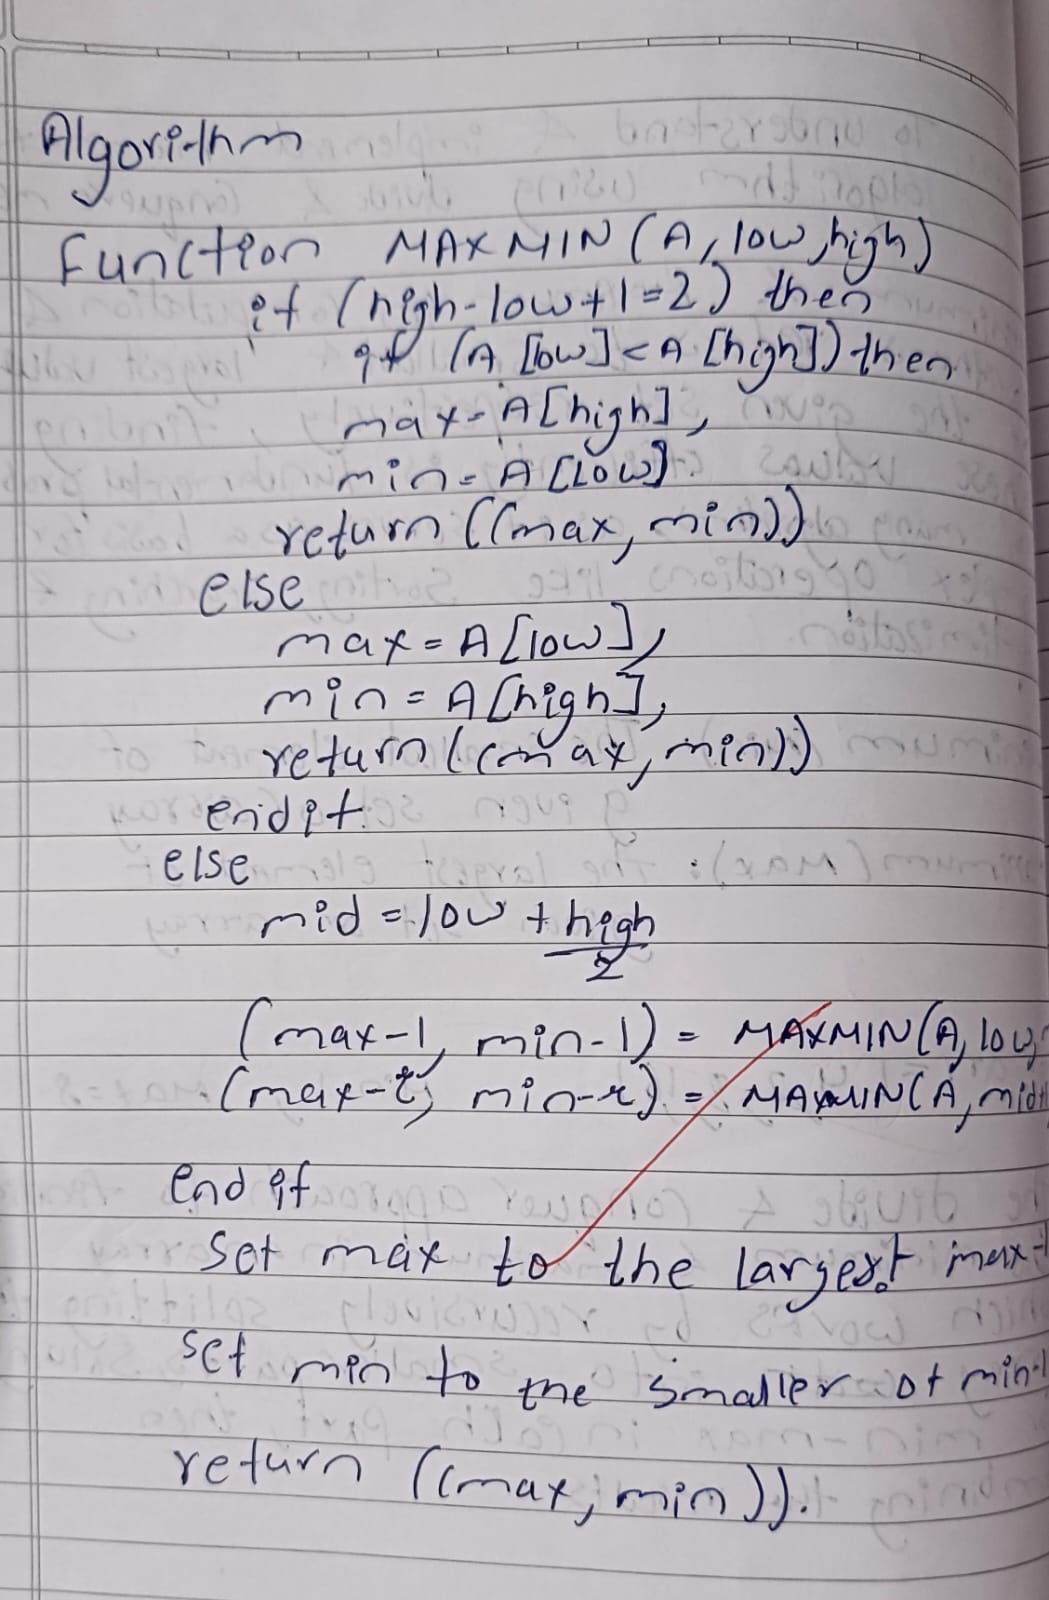 Algorithm
Function MAXMIN (A, low, high)
if (high-low+1=2) then
if (A [low] < A [high]) then
max = A[high],
min = A [low].
return ((max, min))
else
max = A [low],
min = A [high],
return ((max, min))
endif.
else
mid = low + high
2
(max-1, min-1) = MAXMIN (A, low,
(max-r, min-r) = MAXMIN (A, mid+
end if
Set max to the largest max-
set min to the smaller of min-1
return ((max, min)).